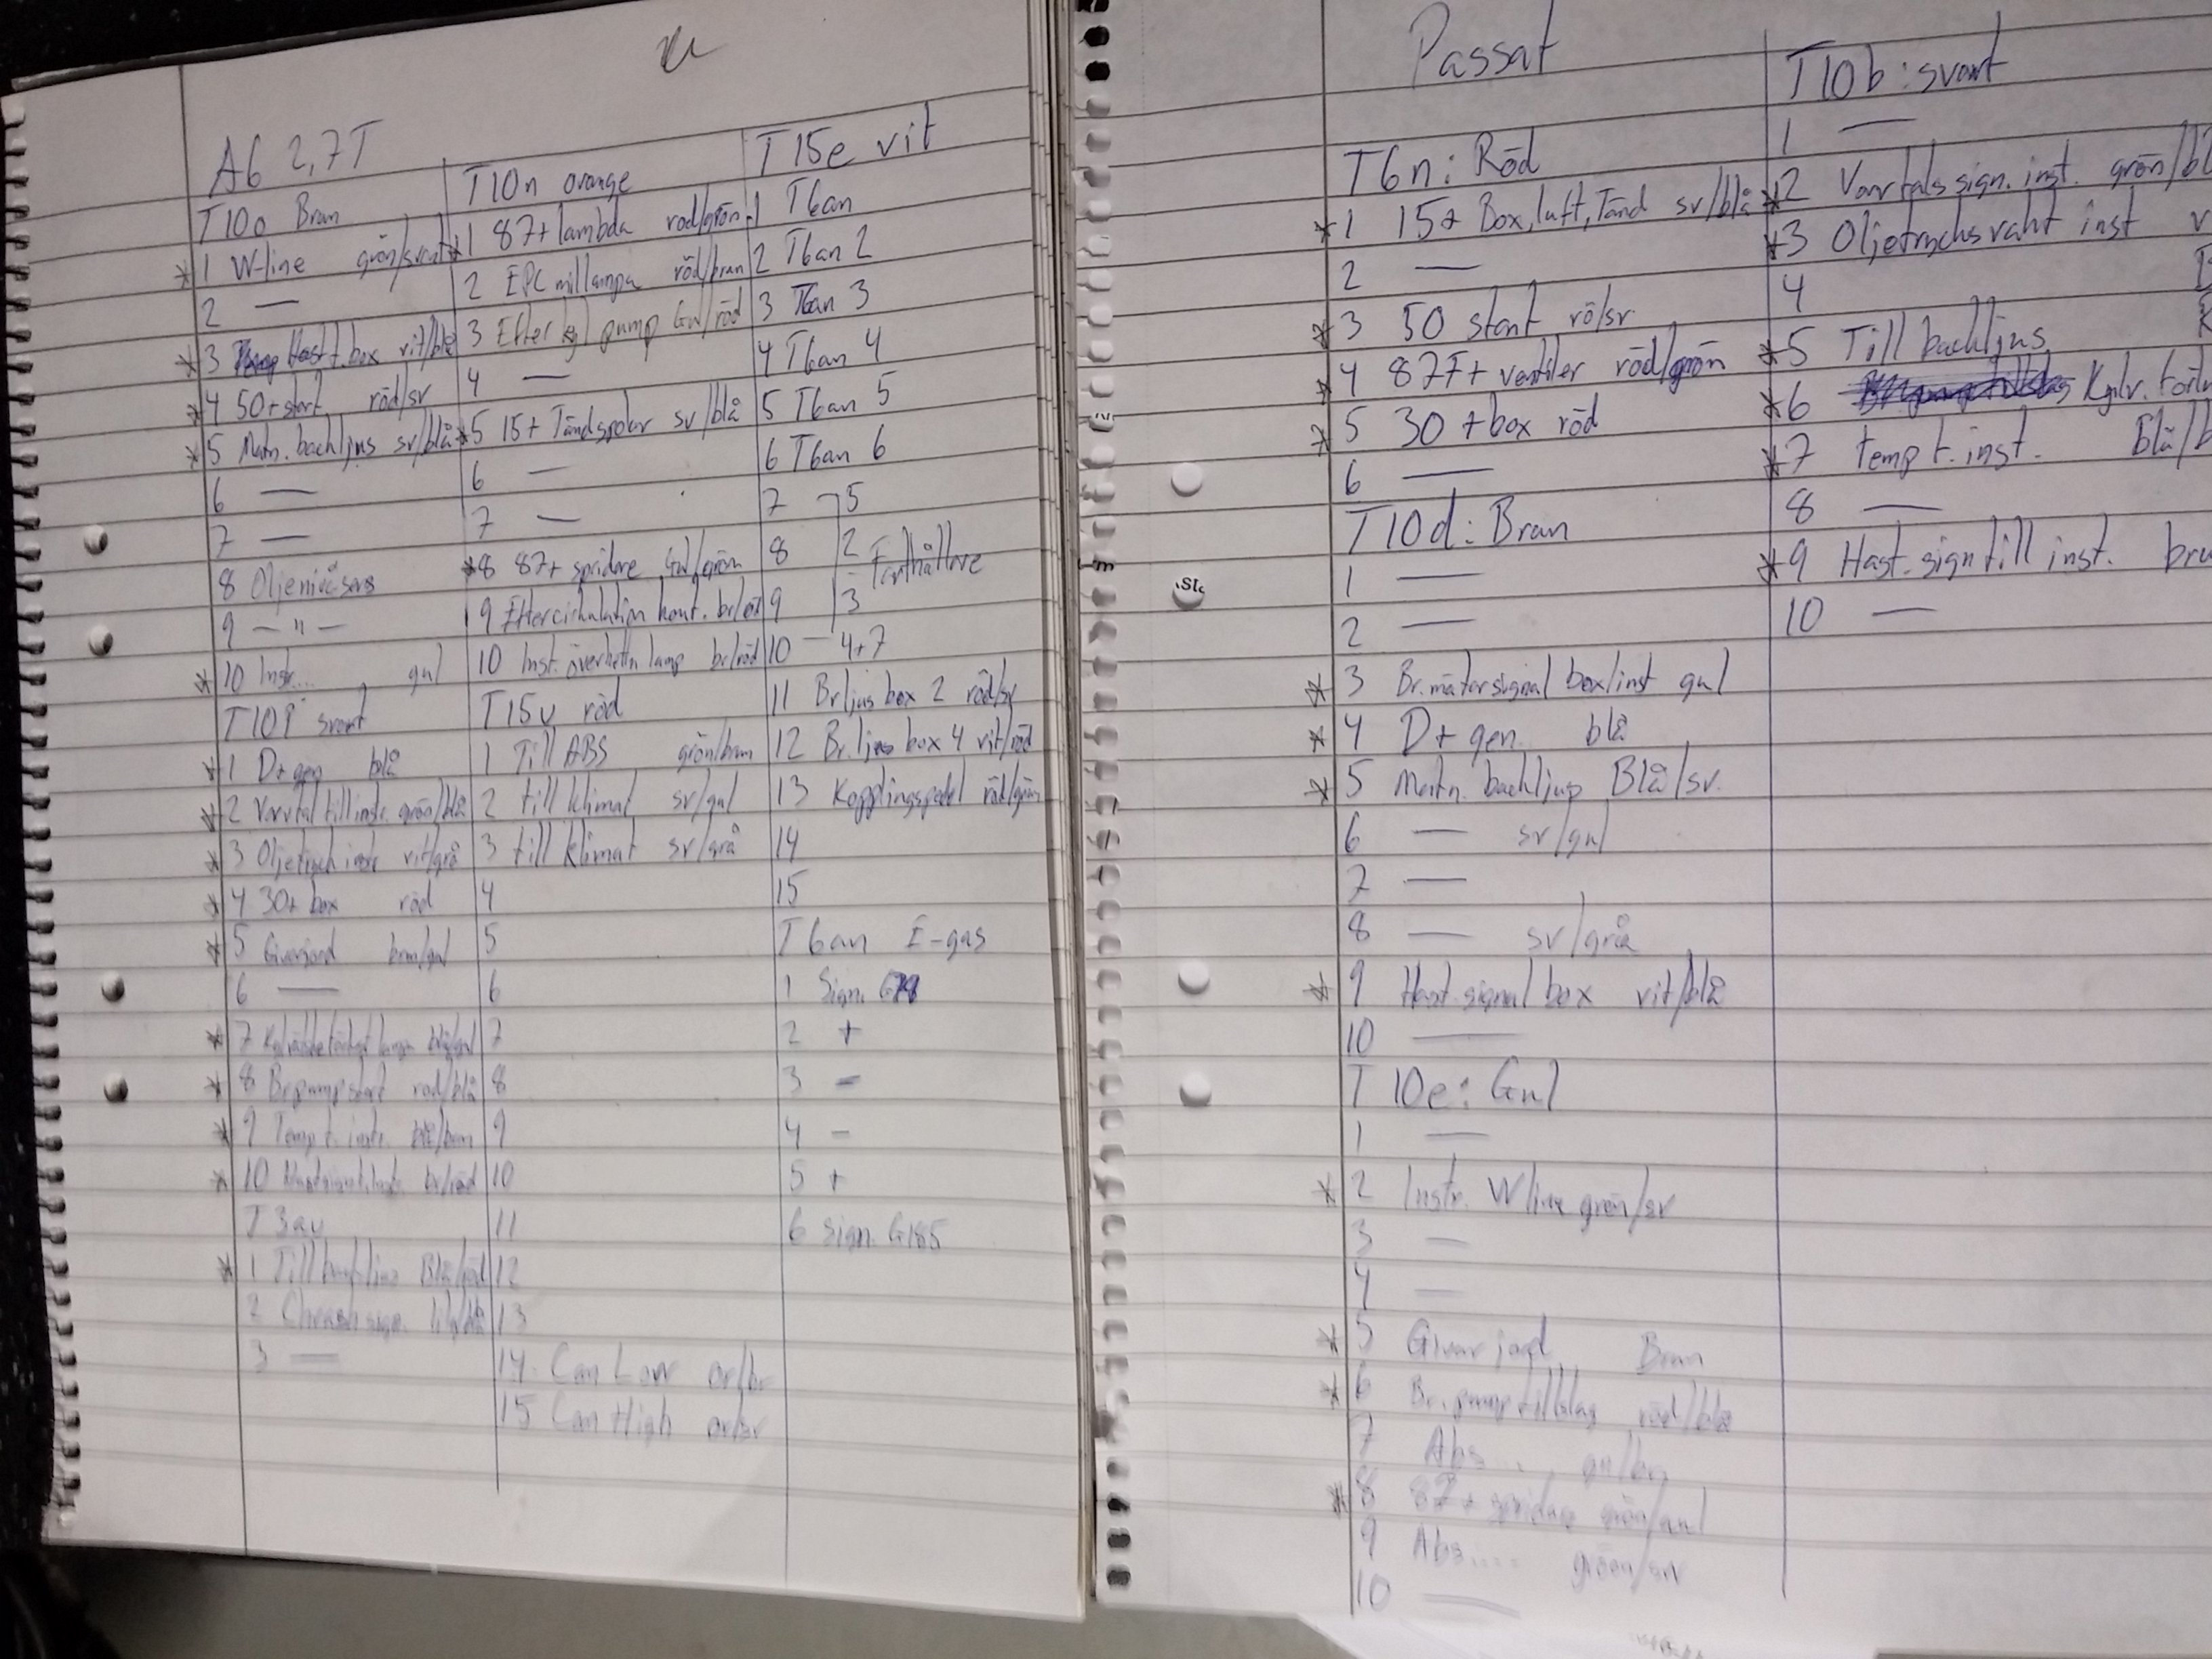 A6 2,7T
T10o Brun
*1 W-line grön/svart
2 —
*3 Hast t. box vit/blå
*4 50+start röd/sv
*5 Matn. backljus sv/blå
6 —
7 —
8 Oljenivåsens
9 — " —
*10 Instr... gul
T10P svart
*1 D+ gen blå
*2 Varvtal till instr. grön/blå
*3 Oljetryck instr vit/grå
*4 30+ box röd
*5 Givarjord brun/gul
6 —
*7
*8 Br.pump start röd/blå
*9 Temp t. instr. blå/brun
*10 br/röd
T3au
*1 Till backljus Blå/röd
2 Chrash sign.
3 —
T10n orange
*1 87+ lambda röd/grön
2 EPC mil lampa röd/brun
3 Efter pump Gul/röd
4 —
*5 15+ Tändspolar sv/blå
6 —
7 —
*8 87+ spridare Gul/grön
9 Eftercirkulation kont.
10 Inst. överhettn lamp br/röd
T15u röd
1 Till ABS grön/brun
2 till klimat sv/gul
3 till klimat sv/grå
4
5
6
7
8
9
10
11
12
13
14 Can Low or/br
15 Can High or/sv
T15e vit
1 T6an
2 T6an 2
3 T6an 3
4 T6an 4
5 T6an 5
6 T6an 6
7 5
8 2 Farthållare
9 3
10 — 4+7
11 Br ljus box 2 röd/sv
12 Br. ljus box 4 vit/röd
13 Kopplingspedal röd/grön
14
15
T6an E-gas
1 Sign. G79
2 +
3 -
4 -
5 +
6 sign. G185
Passat
T6n: Röd
*1 15+ Box, luft, Tänd sv/blå
2 —
*3 50 start rö/sv
*4 87F+ ventiler röd/grön
*5 30 + box röd
6 —
T10d: Brun
1 —
2 —
*3 Br.mätarsignal box/inst gul
*4 D+ gen. blå
*5 Matn. backljus Blå/sv.
6 — sv/gul
7 —
8 — sv/grå
*9 Hast. signal box vit/blå
10 —
T10e: Gul
1 —
*2 Instr. W line grön/sv
3 —
4 —
*5 Givar jord Brun
*6 Br.pump tillslag röd/blå
7 Abs ...
*8 87+ spridare grön/gul
9 Abs.... grön/sv
10 —
T10b: svart
1 —
*2 Varvtals sign. inst. grön/bl
*3 Oljetrycksvakt inst v
4
*5 Till backljus
*6 Kylv.
*7 Temp t. inst. Blå/b
8 —
*9 Hast. sign till inst. bru
10 —